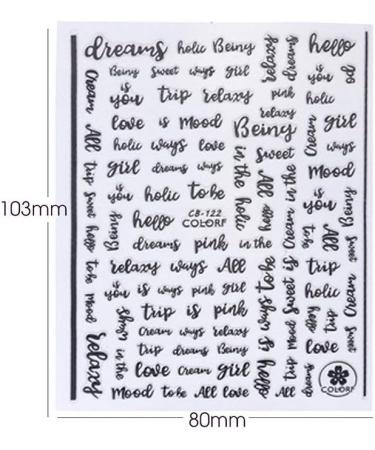 dreams holic Beiny hello
Beiny Sweet ways girl
relaxy
dreams
is
you
go
Cream
is
you
trip relaxy
pink
relaxy
holic
love is Mood
Being
Cream girl
All
holic ways love
Sweet
ways
girl dreams ways
in the holic
Mood
trip sweet hello to be Mood
is
you
holic to be
All hello
Cream in the
is
you
Beiny
hello
CB-122
COLORF
dreams pink in the
All to be
sweet Cream sweet
relaxy ways All
is ways to be hello
trip
you is ways pink girl
Mood Sweet is
holic
trip is pink
Cream ways relaxy
trip
in the
trip dreams Beiny
love
relaxy
is love Cream girl
All trip
dreams
COLORF
Mood to be All love
All
103mm
80mm